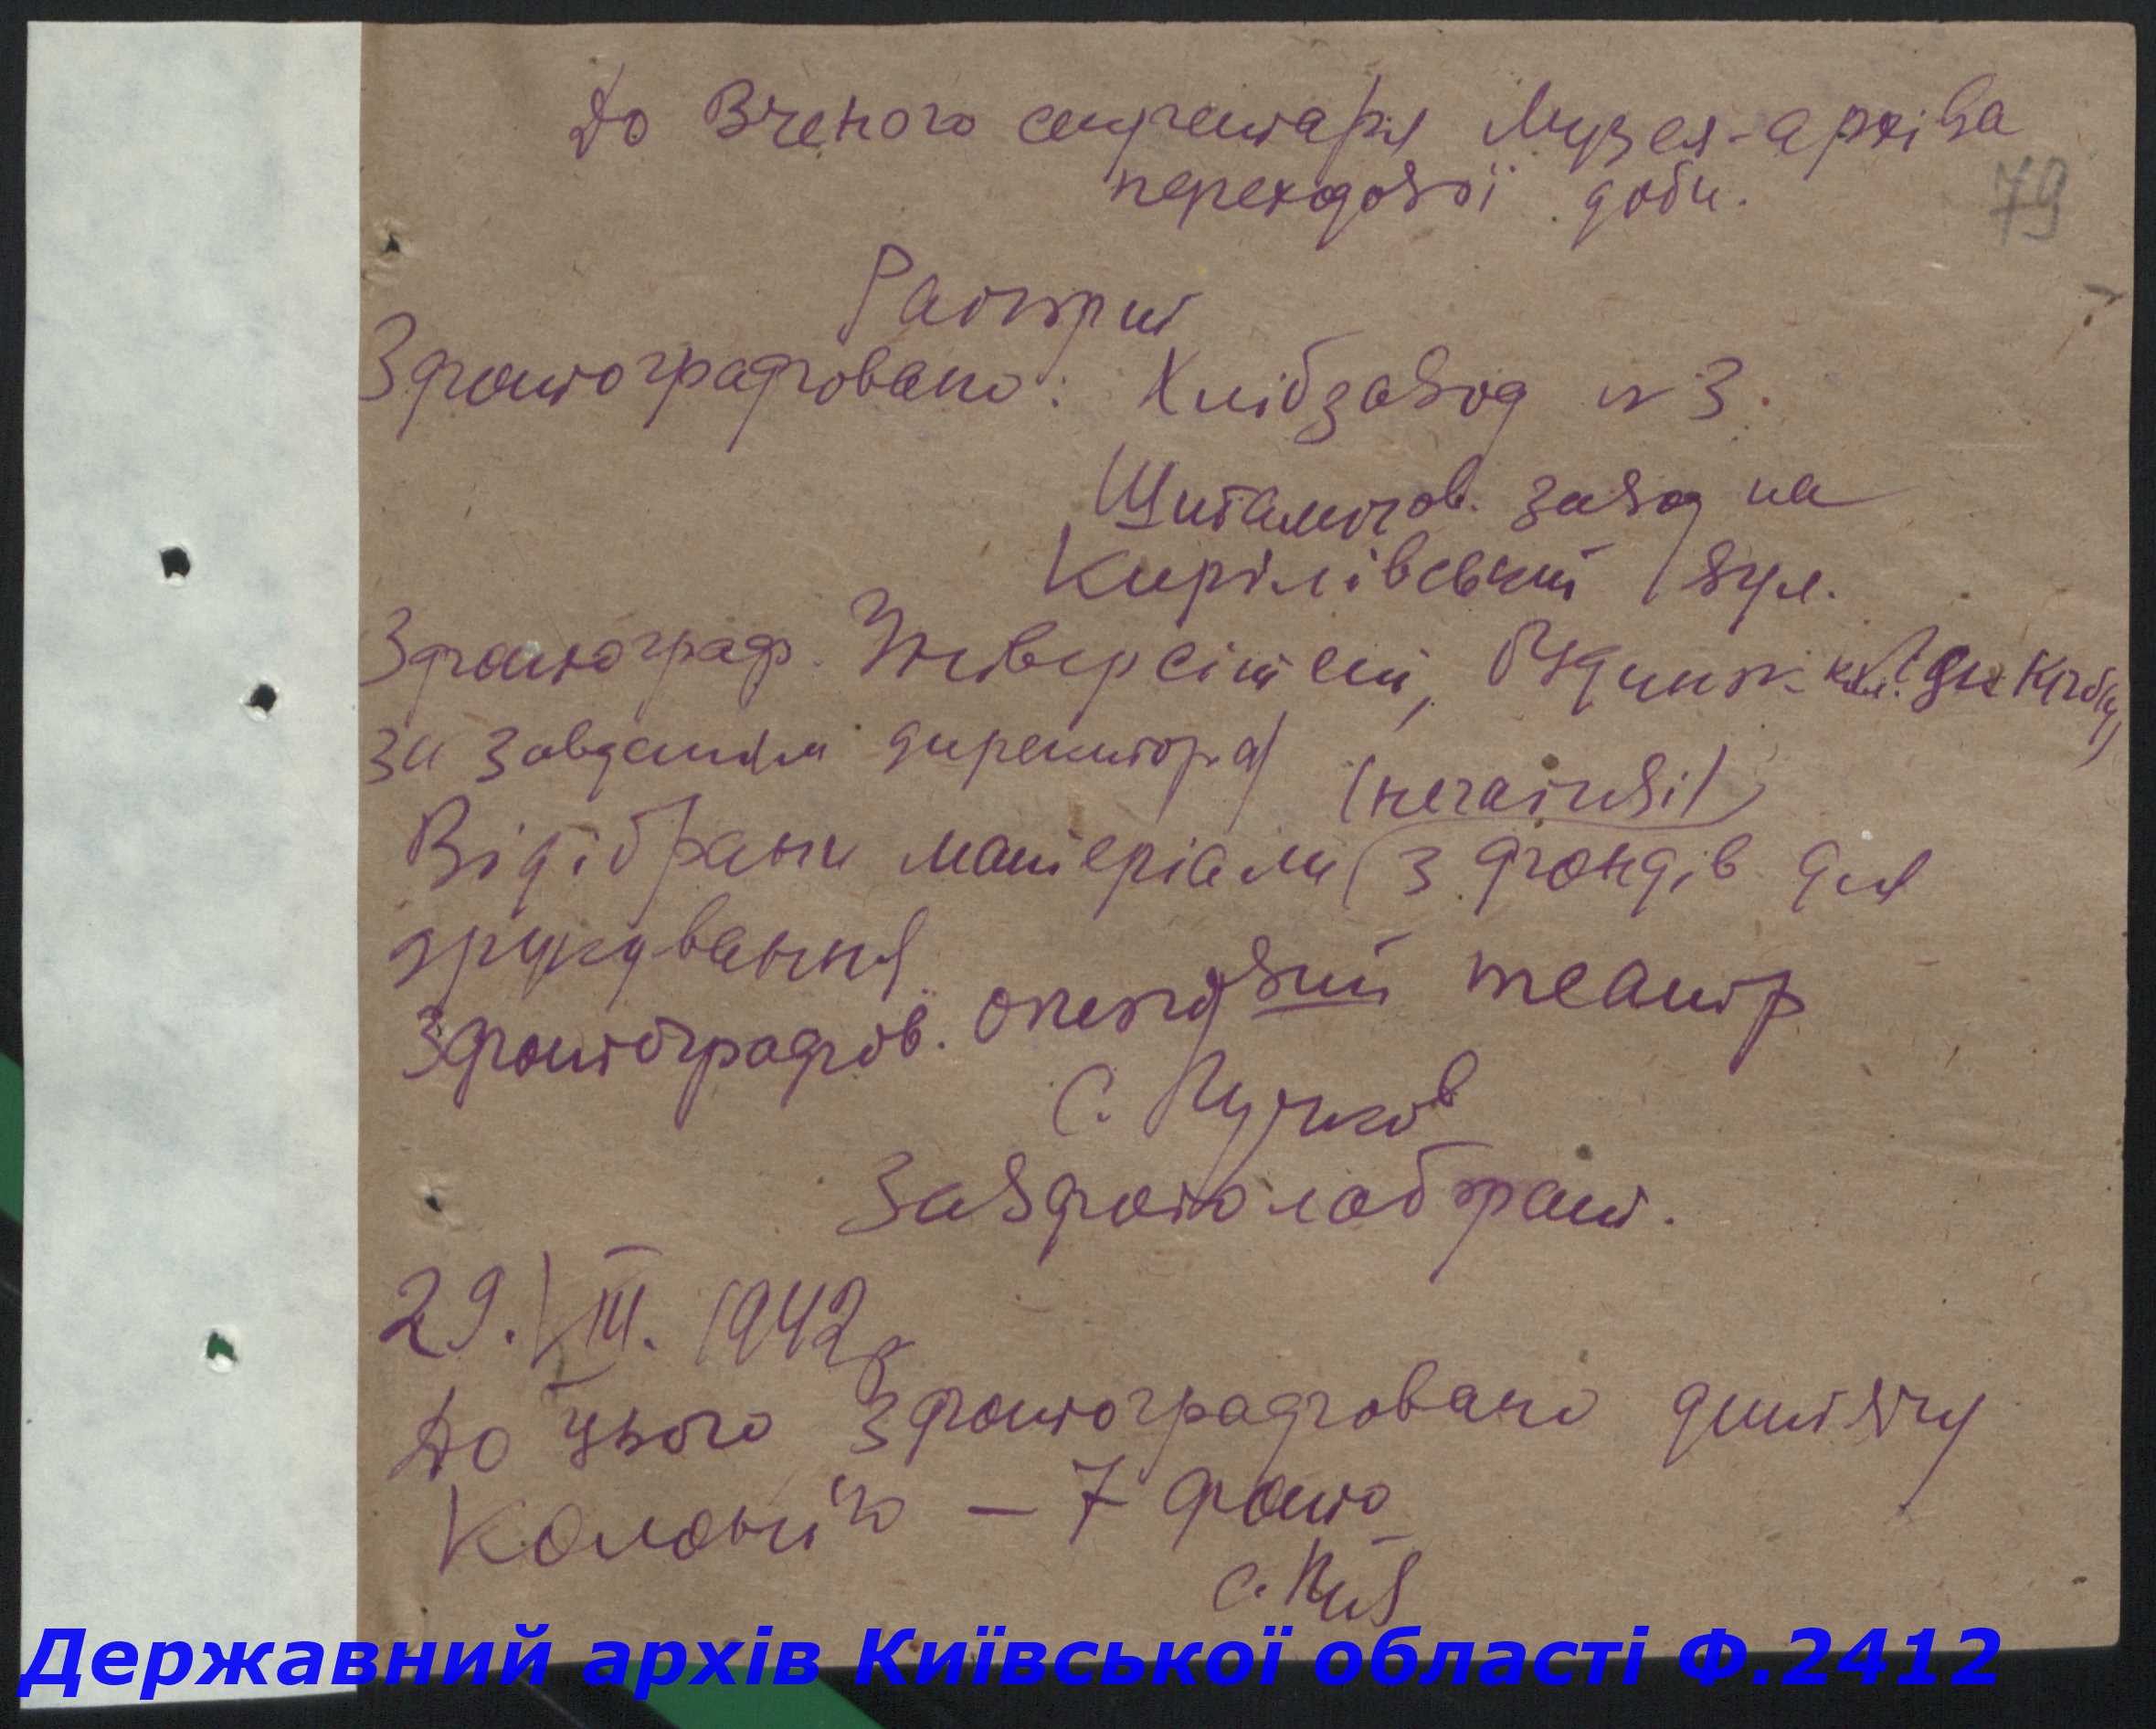 До Вченого секретаря Музея-архіва
переходової доби.
79
Рапорт
Зфотографовано: Хлібзавод №3.
завод на
Кирілівській вул.
Зфотограф. Універсітет,
за завданням директора
(негативі)
Відібрани матеріали з фондів для
друкування
Зфотографов. театр
С. Пучков
Завфотолаборат.
29.VIII.1942р
До цього зфотографовано дитячу
Колонію – 7 фото
Державний архів Київської області Ф.2412